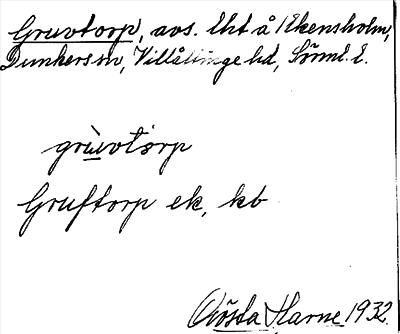 Gruvtorp, avs. lht å Ekensholm,
Dunkers sn, Villåttinge hd, Sörml. l.
grùvtòrp
Gruftorp ek, kb
Gösta Harne 1932.